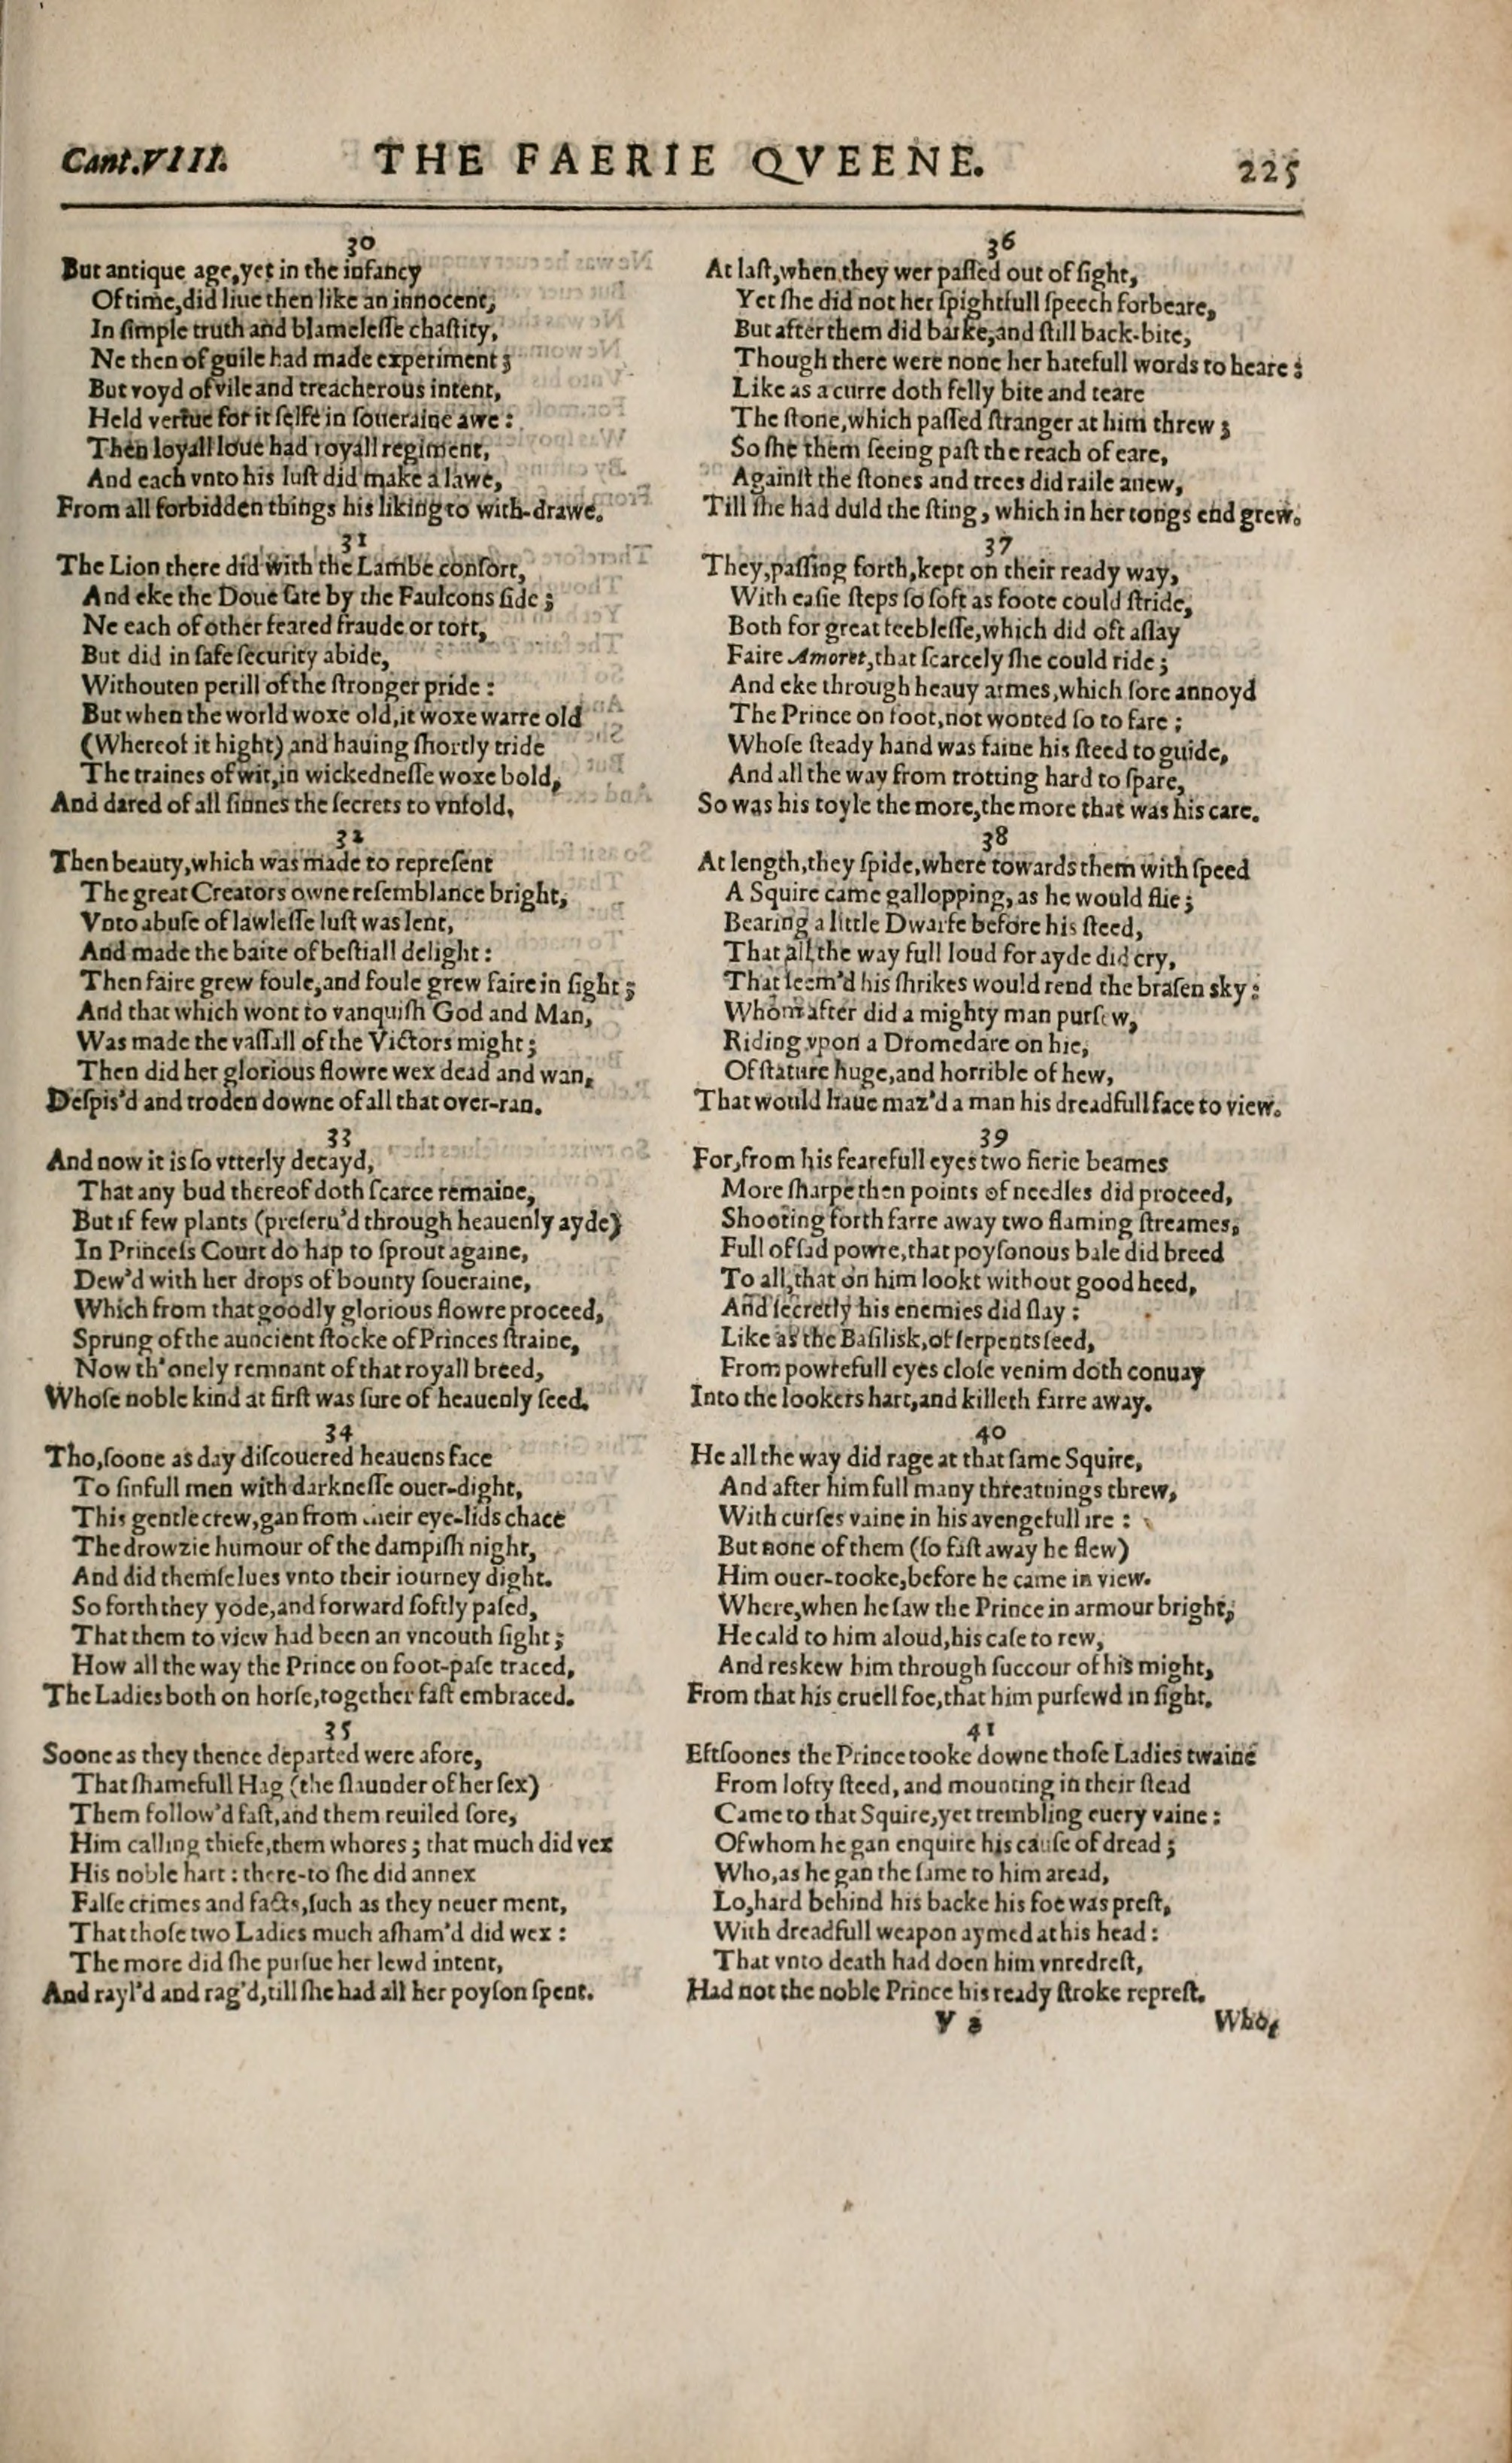 Cant.VIII. THE FAERIE QVEENE. 225
30
But antique age, yet in the infancy
Of time, did liue then like an innocent,
In ſimple truth and blameleſſe chaſtity,
Ne then of guile had made experiment;
But voyd of vile and treacherous intent,
Held vertue for it ſelfe in ſoueraine awe:
Then loyall loue had royall regiment,
And each vnto his luſt did make a lawe,
From all forbidden things his liking to with-drawe.
31
The Lion there did with the Lambe conſort,
And eke the Doue ſate by the Faulcons ſide;
Ne each of other feared fraude or tort,
But did in ſafe ſecurity abide,
Withouten perill of the ſtronger pride:
But when the world woxe old, it woxe warre old
(Whereof it hight) and hauing ſhortly tride
The traines of wit, in wickedneſſe woxe bold,
And dared of all ſinnes the ſecrets to vnfold.
32
Then beauty, which was made to repreſent
The great Creators owne reſemblance bright,
Vnto abuſe of lawleſſe luſt was lent,
And made the baite of beſtiall delight:
Then faire grew foule, and foule grew faire in ſight;
And that which wont to vanquiſh God and Man,
Was made the vaſſall of the Victors might;
Then did her glorious flowre wex dead and wan,
Deſpis'd and troden downe of all that over-ran.
33
And now it is ſo vtterly decayd,
That any bud thereof doth ſcarce remaine,
But if few plants (preſeru'd through heauenly ayde)
In Princeſs Court do hap to ſprout againe,
Dew'd with her drops of bounty ſoueraine,
Which from that goodly glorious flowre proceed,
Sprung of the auncient ſtocke of Princes ſtraine,
Now th'onely remnant of that royall breed,
Whoſe noble kind at firſt was ſure of heauenly ſeed.
34
Tho, ſoone as day diſcouered heauens face
To ſinfull men with darkneſſe ouer-dight,
This gentle crew, gan from their eye-lids chace
The drowzie humour of the dampiſh night,
And did themſelues vnto their iourney dight.
So forth they yode, and forward ſoftly paſed,
That them to view had been an vncouth ſight;
How all the way the Prince on foot-paſe traced,
The Ladies both on horſe, together faſt embraced.
35
Soone as they thence departed were afore,
That ſhamefull Hag (the ſlaunder of her ſex)
Them follow'd faſt, and them reuiled ſore,
Him calling thiefe, them whores; that much did vex
His noble hart: there-to ſhe did annex
Falſe crimes and facts, ſuch as they neuer ment,
That thoſe two Ladies much aſham'd did wex:
The more did ſhe purſue her lewd intent,
And rayl'd and rag'd, till ſhe had all her poyſon ſpent.
36
At laſt, when they wer paſſed out of ſight,
Yet ſhe did not her ſpightfull ſpeech forbeare,
But after them did barke, and ſtill back-bite,
Though there were none her hatefull words to heare:
Like as a curre doth felly bite and teare
The ſtone, which paſſed ſtranger at him threw;
So ſhe them ſeeing paſt the reach of eare,
Againſt the ſtones and trees did raile anew,
Till ſhe had duld the ſting, which in her tongs end grew.
37
They, paſſing forth, kept on their ready way,
With eaſie ſteps ſo ſoft as foote could ſtride,
Both for great feebleſſe, which did oft aſſay
Faire Amoret, that ſcarcely ſhe could ride;
And eke through heauy armes, which ſore annoyd
The Prince on foot, not wonted ſo to fare;
Whoſe ſteady hand was faine his ſteed to guide,
And all the way from trotting hard to ſpare,
So was his toyle the more, the more that was his care.
38
At length, they ſpide, where towards them with ſpeed
A Squire came gallopping, as he would flie;
Bearing a little Dwarfe before his ſteed,
That all the way full loud for ayde did cry,
That ſeem'd his ſhrikes would rend the braſen sky:
Whom after did a mighty man purſew,
Riding vpon a Dromedare on hie,
Of ſtature huge, and horrible of hew,
That would haue maz'd a man his dreadfull face to view.
39
For, from his fearefull eyes two fierie beames
More ſharpe then points of needles did proceed,
Shooting forth farre away two flaming ſtreames,
Full of ſad powre, that poyſonous bale did breed
To all, that on him lookt without good heed,
And ſecretly his enemies did ſlay:
Like as the Baſilisk, of ſerpents ſeed,
From powrefull eyes cloſe venim doth conuay
Into the lookers hart, and killeth farre away.
40
He all the way did rage at that ſame Squire,
And after him full many threatnings threw,
With curſes vaine in his avengefull ire:
But none of them (ſo faſt away he flew)
Him ouer-tooke, before he came in view.
Where, when he ſaw the Prince in armour bright,
He cald to him aloud, his caſe to rew,
And reskew him through ſuccour of his might,
From that his cruell foe, that him purſewd in ſight.
41
Eftſoones the Prince tooke downe thoſe Ladies twaine
From lofty ſteed, and mounting in their ſtead
Came to that Squire, yet trembling euery vaine:
Of whom he gan enquire his cauſe of dread;
Who, as he gan the ſame to him aread,
Lo, hard behind his backe his foe was preſt,
With dreadfull weapon aymed at his head:
That vnto death had doen him vnredreſt,
Had not the noble Prince his ready ſtroke repreſt.
V 3 Who,